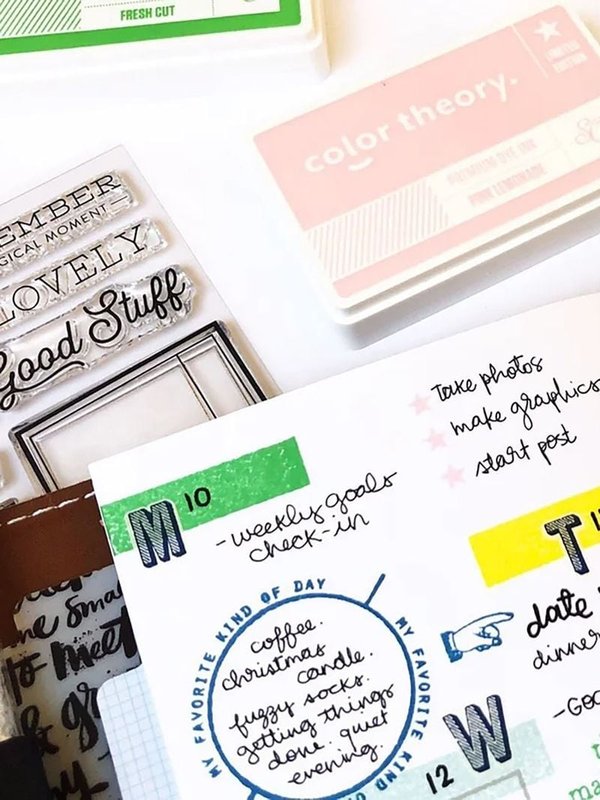 FRESH CUT
color theory.
LIMITED
EDITION
PREMIUM DYE INK
PINK LEMONADE
EMBER
GICAL MOMENT
LOVELY
Good Stuff
Take photos
make graphics
start post
M 10
-weekly goals
check-in
T
MY FAVORITE KIND OF DAY
MY FAVORITE KIND O
coffee.
christmas
candle.
fuzzy socks.
getting things
done. quiet
evening.
date
dinner
-GOO
12 W
to meet
& gr